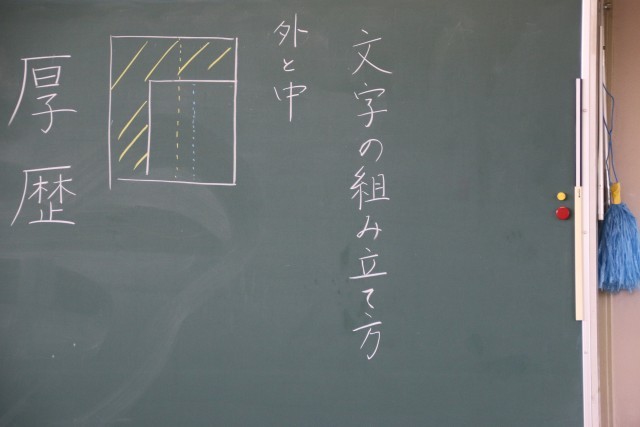 文字の組み立て方
外と中
厚
歴